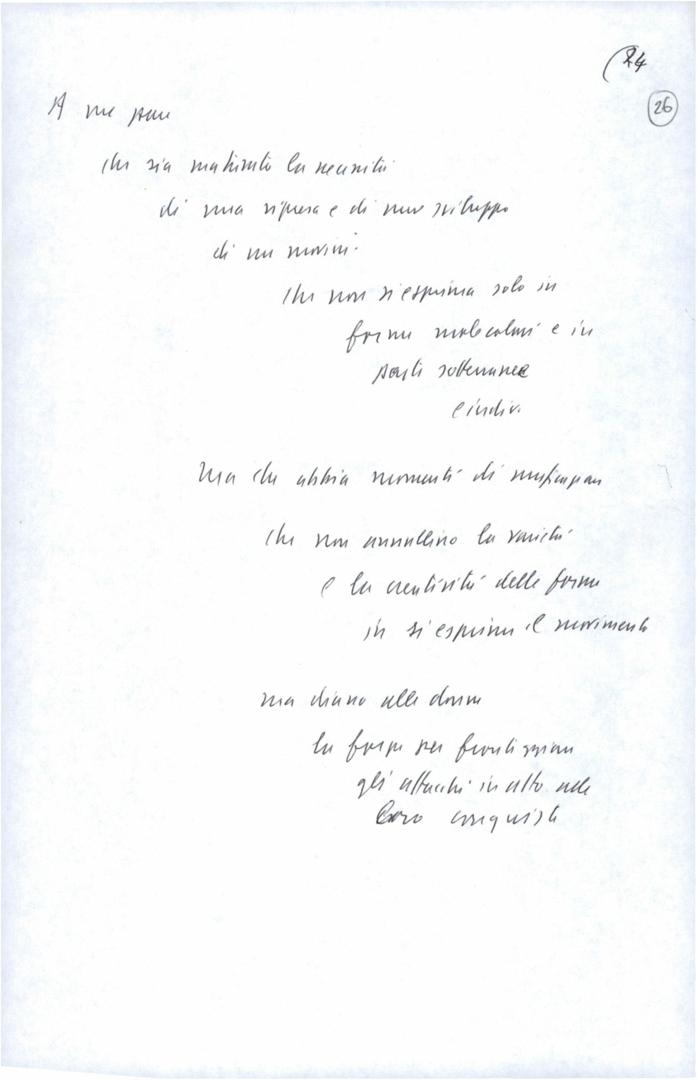 24
26
A me pare
che sia maturata la necessità
di una ripresa e di uno sviluppo
di un movim.
che non si esprima solo in
forme molecolari e in
sotterranee
e indiv.
Ma che abbia momenti di
che non annullino la varietà
e la creatività delle forme
in si esprime il movimento
ma diano alle donne
la forza per fronteggiare
gli attacchi in atto alle
loro conquiste